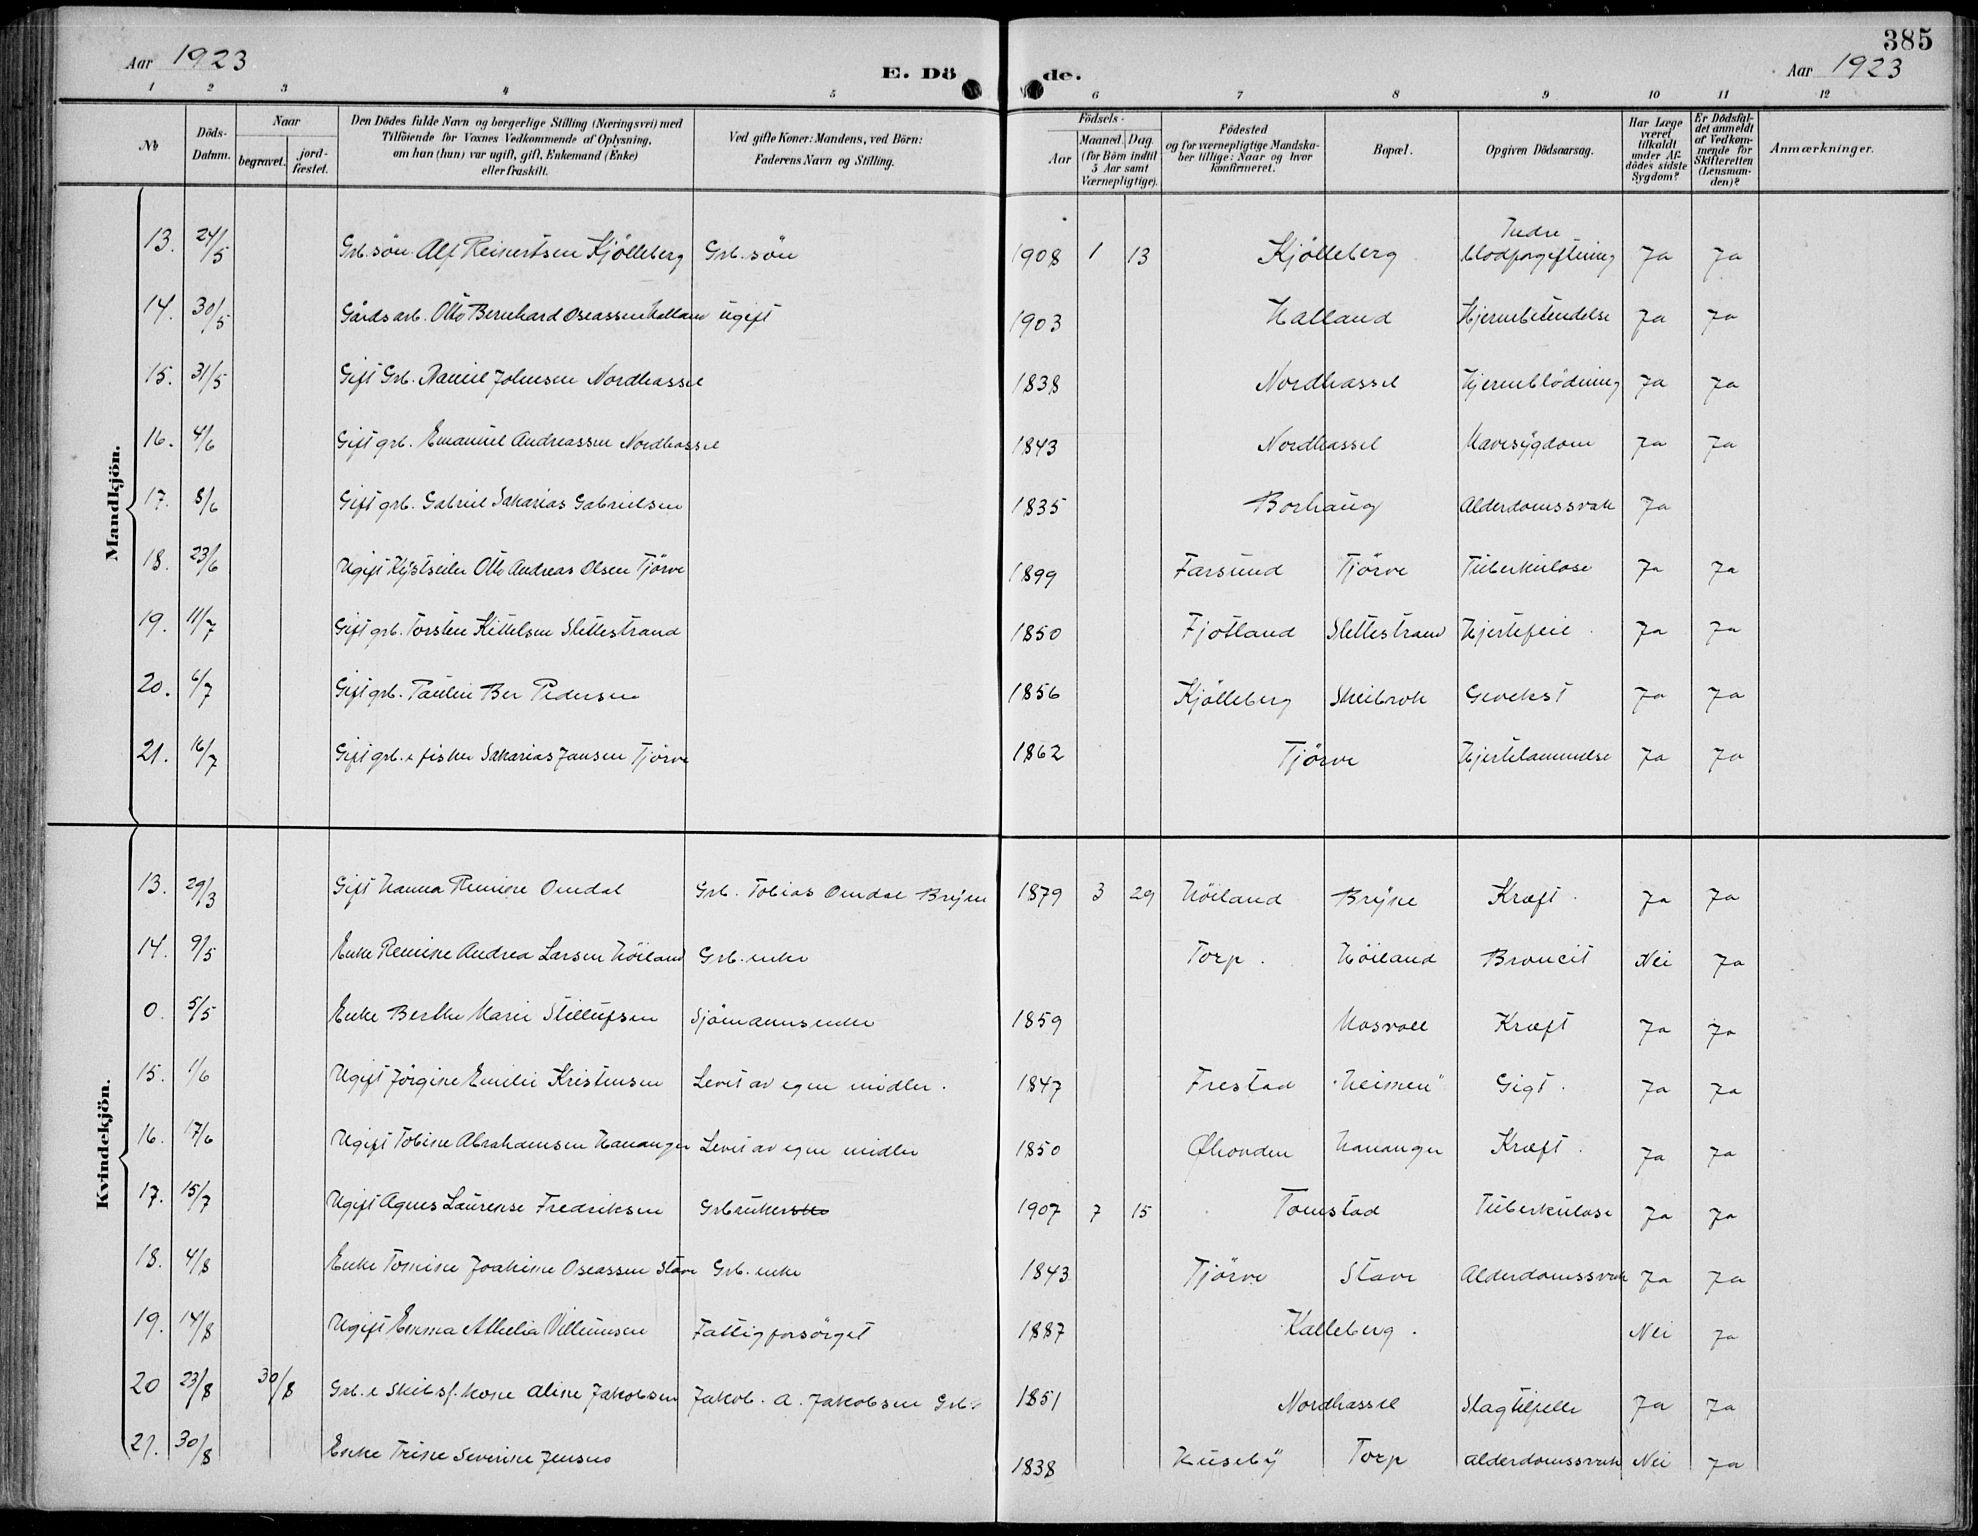 385
Aar 1923 E. Dö de. Aar 1923
1 2 3 4 5 6 7 8 9 10 11 12
No Döds-Datum. Naar begravet. jordfæstet. Den Dödes fulde Navn og borgerlige Stilling (Næringsvei) med Tilföiende for Voxnes Vedkommende af Oplysning, om han (hun) var ugift, gift, Enkemand (Enke) eller fraskilt. Ved gifte Koner: Mandens, ved Börn: Faderens Navn og Stilling. Födsels- Aar Maaned. Dag. (for Börn indtil 5 Aar samt Værnepligtige). Födested og for værnepligtige Mandskaber tillige: Naar og hvor konfirmeret. Bopæl. Opgiven Dödsaarsag. Har Læge været tilkaldt under Afdödes sidste Sygdom? Er Dödsfaldet anmeldt af Vedkommende for Skifteretten (Lensmanden)? Anmærkninger.
Mandkjön.
13. 24/5 Grb. sön Alf Reinertsen Kjölleberg Grb. sön 1908 1 13 Kjölleberg Indre blodforgiftning Ja Ja
14. 30/5 Gårdsarb. Otto Bernhard Oseassen Halland ugift 1903 Halland Hjernebetendelse Ja Ja
15. 31/5 Gift Grb. Daniel Johnsen Nordhassel 1838 Nordhassel Hjerneblödning Ja Ja
16. 4/6 Gift grb. Emanuel Andreassen Nordhassel 1843 Nordhassel Mavesygdom Ja Ja
17. 8/6 Gift grb. Gabriel Sakarias Gabrielsen 1835 Borhaug Alderdomssvak Ja
18. 23/6 Ugift Kystseiler Otto Andreas Olsen Tjörve 1899 Farsund Tjörve Tuberkulose Ja Ja
19. 11/7 Gift grb. Torsten Kittelsen Slettestrand 1850 Fjotland Slettestrand Hjertefeil Ja Ja
20. 6/7 Gift grb. Paulin Ber Pedersen 1856 Kjölleberg Skeibrok Gevekst Ja Ja
21. 16/7 Gift grb. & fisker Sakarias Jansen Tjörve 1862 Tjörve Hjertelammelse Ja Ja
Kvindekjön.
13. 29/3 Gift Hanna Remine Omdal Grb. Tobias Omdal Bryne 1879 3 29 Höiland Bryne Kræft. Ja Ja
14. 9/5 Enke Remine Andrea Larsen Höiland Grb. enke Torp. Höiland Broncit Nei Ja
0. 5/5 Enke Berthe Marie Stillufsen Sjömannsenke 1859 Mosvoll Kræft Ja Ja
15. 1/6 Ugift Jörgine Emilie Kristensen Levet av egne midler. 1847 Frestad "Heimen" Gigt. Ja Ja
16. 17/6 Ugift Tobine Abrahamsen Hananger Levet av egne midler 1850 Hananger Kræft. Ja Ja
17. 15/7 Ugift Agnes Laurense Fredriksen 1907 7 15 Tomstad Tuberkulose Ja Ja
18. 4/8 Enke Tomine Joakime Oseassen Stave Grb. enke 1843 Tjörve Stave Alderdomssvak Ja Ja
19. 14/8 Ugift Emma Athelia Villumsen Fattigforsörget 1887 Kalleberg. Nei Ja
20 23/8 30/8 Grb. & Skibsf. kone Aline Jakobsen Jakob. A. Jakobsen Grb. 1851 Nordhassel Slagtilfelle Ja Ja
21. 30/8 Enke Trine Severine Jensen 1838 Huseby Torp Alderdomssvak Nei Ja